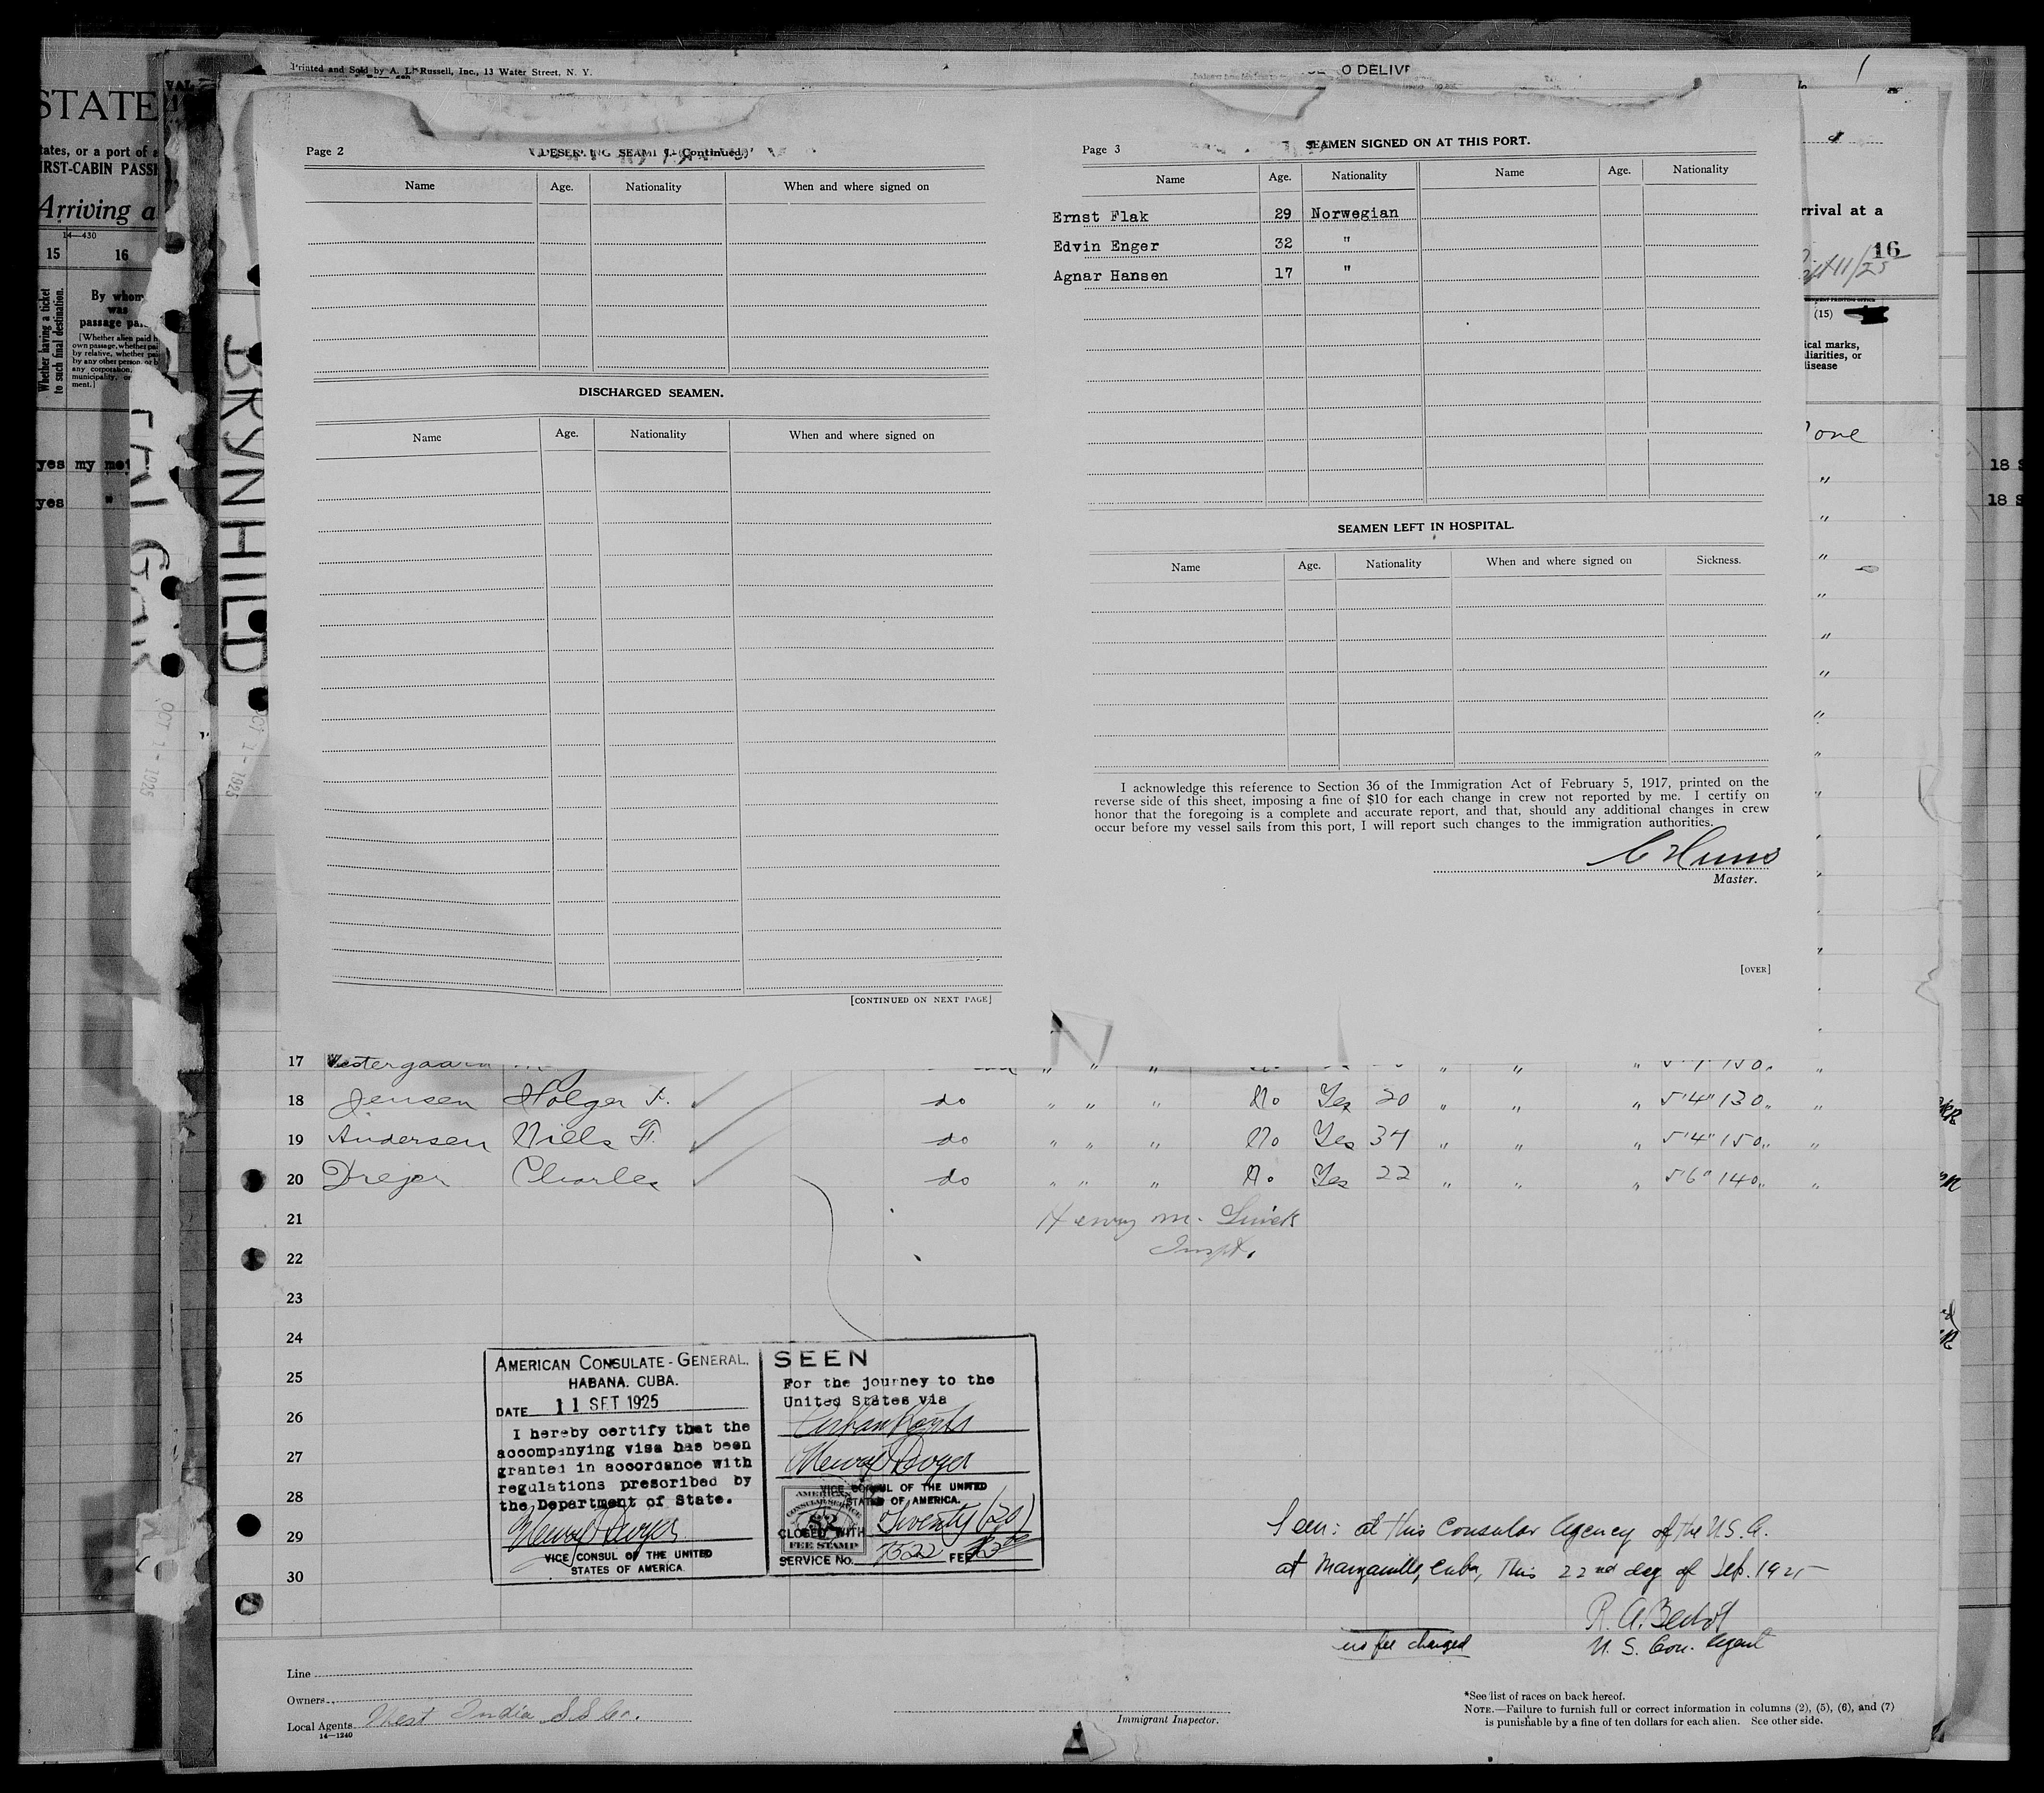 Printed and Sold by A. L. Russell, Inc., 13 Water Street, N. Y.
O DELIV
STATE
tates, or a port of a
IRST-CABIN PASS
Arriving a
14—430
15 16
Whether having a ticket to such final destination.
By whom was passage pa
[Whether alien paid h
own passage, whether pai
by relative, whether pai
by any other person, or b
any corporation,
municipality, or
ment.]
yes my mo
yes "
BRYNHILD
OCT 1 - 1925
OCT 1 - 1925
Page 2
DESERTING SEAMEN (Continued)
Name Age. Nationality When and where signed on
DISCHARGED SEAMEN.
Name Age. Nationality When and where signed on
[CONTINUED ON NEXT PAGE]
Page 3
SEAMEN SIGNED ON AT THIS PORT.
Name Age. Nationality Name Age. Nationality
Ernst Flak 29 Norwegian
Edvin Enger 32 "
Agnar Hansen 17 "
SEAMEN LEFT IN HOSPITAL.
Name Age. Nationality When and where signed on Sickness.
I acknowledge this reference to Section 36 of the Immigration Act of February 5, 1917, printed on the
reverse side of this sheet, imposing a fine of $10 for each change in crew not reported by me. I certify on
honor that the foregoing is a complete and accurate report, and that, should any additional changes in crew
occur before my vessel sails from this port, I will report such changes to the immigration authorities.
Master.
[OVER]
rrival at a
16
11/25
(15)
ical marks,
liarities, or
disease
one
18 S
18 S
17 Westergaard
18 Jensen Holger F. do " " " No Yes 20 " " " 5'4" 130 " "
19 Andersen Niels F. do " " " No Yes 34 " " " 5'4" 150 " "
20 Drejer Charles do " " " No Yes 22 " " " 5'6" 140 " "
21 Henry M.
22 Inspt.
23
24
25
26
27
28
29
30
AMERICAN CONSULATE-GENERAL.
HABANA. CUBA.
DATE 11 SET 1925
I hereby certify that the
accompanying visa has been
granted in accordance with
regulations prescribed by
the Department of State.
VICE CONSUL OF THE UNITED
STATES OF AMERICA.
SEEN
For the journey to the
United States via
VICE CONSUL OF THE UNITED
STATES OF AMERICA.
AMERICAN
CONSULAR SERVICE
$2
FEE STAMP
CLOSED WITH Twenty (20)
SERVICE No. 7522 FEE
Seen: at this Consular Agency of the U.S.A.
at Manzanillo, Cuba, this 22nd day of Sep. 1925
R. A. Bertot
U. S. Con. Agent
no fee charged
Line
Owners
Local Agents West India SS Co.
14—1240
Immigrant Inspector.
*See list of races on back hereof.
NOTE.—Failure to furnish full or correct information in columns (2), (5), (6), and (7)
is punishable by a fine of ten dollars for each alien. See other side.